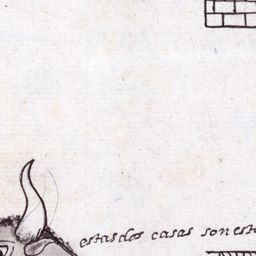 estas dos casas son est